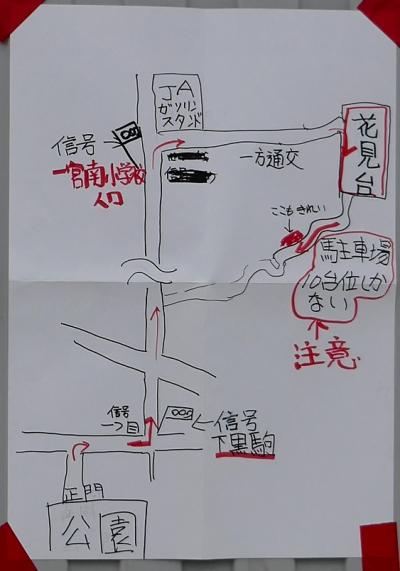 JA
ガソリン
スタンド
信号
一宮南小学校
入口
一方通交
花見台
ここもきれい
駐車場
10台位しか
ない
注意
信号
一つ目
信号
下黒駒
正門
公園